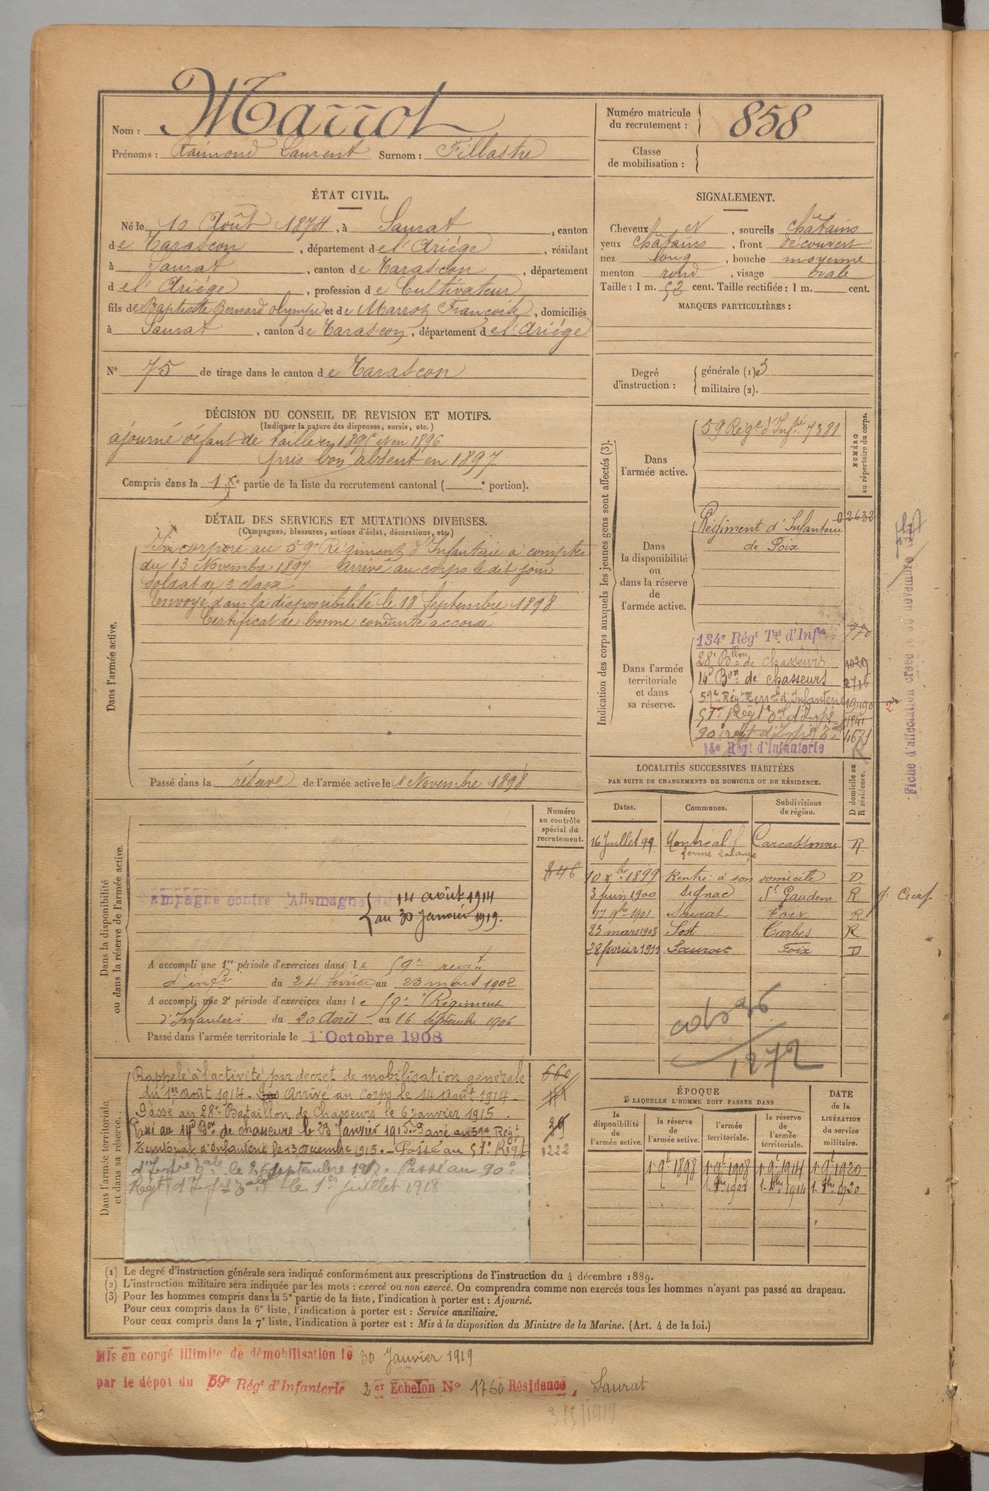 Nom : Marrot
Prénoms : Raimond Laurent Surnom : Fillastre
Numéro matricule du recrutement : 858
Classe de mobilisation :
ÉTAT CIVIL.
Né le 10 Août 1874, à Saurat, canton
de Tarascon, département de l'Ariége, résidant
à Saurat, canton de Tarascon, département
de l'Ariége, profession de Cultivateur
fils de Baptiste Bernard Olympe et de Marrot Françoise, domiciliés
à Saurat, canton de Tarascon, département de l'Ariége
N° 75 de tirage dans le canton de Tarascon
SIGNALEMENT.
Cheveux et, sourcils châtains
yeux châtains, front découvert
nez long, bouche moyenne
menton rond, visage ovale
Taille : 1 m. 52 cent. Taille rectifiée : 1 m. cent.
MARQUES PARTICULIÈRES :
Degré d'instruction : générale (1) 3
militaire (2).
DÉCISION DU CONSEIL DE REVISION ET MOTIFS.
(Indiquer la nature des dispenses, sursis, etc.)
ajourné défaut de taille en 1895 et en 1896
pris bon absent en 1897
Compris dans la 1re partie de la liste du recrutement cantonal ( e portion).
DÉTAIL DES SERVICES ET MUTATIONS DIVERSES.
(Campagnes, blessures, actions d'éclat, décorations, etc.)
Dans l'armée active.
Incorporé au 59e Régiment d'Infanterie à compter
du 13 Novembre 1897 arrivé au corps le dit jour
soldat de 2e classe
Envoyé dans la disponibilité le 18 Septembre 1898
Certificat de bonne conduite accordé
Passé dans la réserve de l'armée active le 1 Novembre 1898
Indication des corps auxquels les jeunes gens sont affectés (3).
NUMÉRO au répertoire du corps.
Dans l'armée active.
59 Régt d'Infie 7381
Dans la disponibilité ou dans la réserve de l'armée active.
Régiment d'Infanterie 02632
de Foix
Dans l'armée territoriale et dans sa réserve.
134e Régt Tal d'Infie 770
28e Blon de chasseurs
14e Bon de chasseurs
59e Régt Terral d'Infanterie
14e Régt d'Infanterie
LOCALITÉS SUCCESSIVES HABITÉES
PAR SUITE DE CHANGEMENTS DE DOMICILE OU DE RÉSIDENCE.
Dates. Communes. Subdivisions de région. D domicile ou R résidence.
16 Juillet 99 Montréal Carcassonne R
10 xbre 1899 Rentré à son domicile D
3 juin 1900 Signac St Gaudens R
17 9bre 1901 Saurat Foix R
23 mars 1903 Sost Tarbes R
28 février 1912 Saurat Foix D
Dans la disponibilité ou dans la réserve de l'armée active.
Numéro au contrôle spécial du recrutement.
846
Campagne contre l'Allemagne du
14 août 1914
au 30 Janvier 1919.
A accompli une 1re période d'exercices dans le 59e régt
d'infie du 24 février au 23 mars 1902
A accompli une 2e période d'exercices dans le 59e Régiment
d'Infanterie du 20 Août au 16 septembre 1906
Passé dans l'armée territoriale le 1 Octobre 1908
Dans l'armée territoriale et dans sa réserve.
Rappelé à l'activité par décret de mobilisation générale
du 1er août 1914. Arrivé au corps le 14 août 1914.
Passé au 28e Bataillon de Chasseurs le 6 janvier 1915.
Passé au 14e Bon de chasseurs le 23 Janvier 1915. Passé au 59e Régt
Territorial d'Infanterie le 13 décembre 1915. Passé au 51e Régt
Passé au 90e
Régt d'Infie le 1er juillet 1918
1222
ÉPOQUE
À LAQUELLE L'HOMME DOIT PASSER DANS
la disponibilité de l'armée active.
la réserve de l'armée active.
l'armée territoriale.
la réserve de l'armée territoriale.
DATE de la LIBÉRATION du service militaire.
1. 9e 1898 1. 9e 1908 1. 9e 1914 1. 9e 1920
(1) Le degré d'instruction générale sera indiqué conformément aux prescriptions de l'instruction du 4 décembre 1889.
(2) L'instruction militaire sera indiquée par les mots : exercé ou non exercé. On comprendra comme non exercés tous les hommes n'ayant pas passé au drapeau.
(3) Pour les hommes compris dans la 5e partie de la liste, l'indication à porter est : Ajourné.
Pour ceux compris dans la 6e liste, l'indication à porter est : Service auxiliaire.
Pour ceux compris dans la 7e liste, l'indication à porter est : Mis à la disposition du Ministre de la Marine. (Art. 4 de la loi.)
Mis en congé illimité de démobilisation le 30 Janvier 1919
par le dépôt du 59e Régt d'Infanterie 2er Echelon No 1760 Résidence, Saurat
3/5/1919